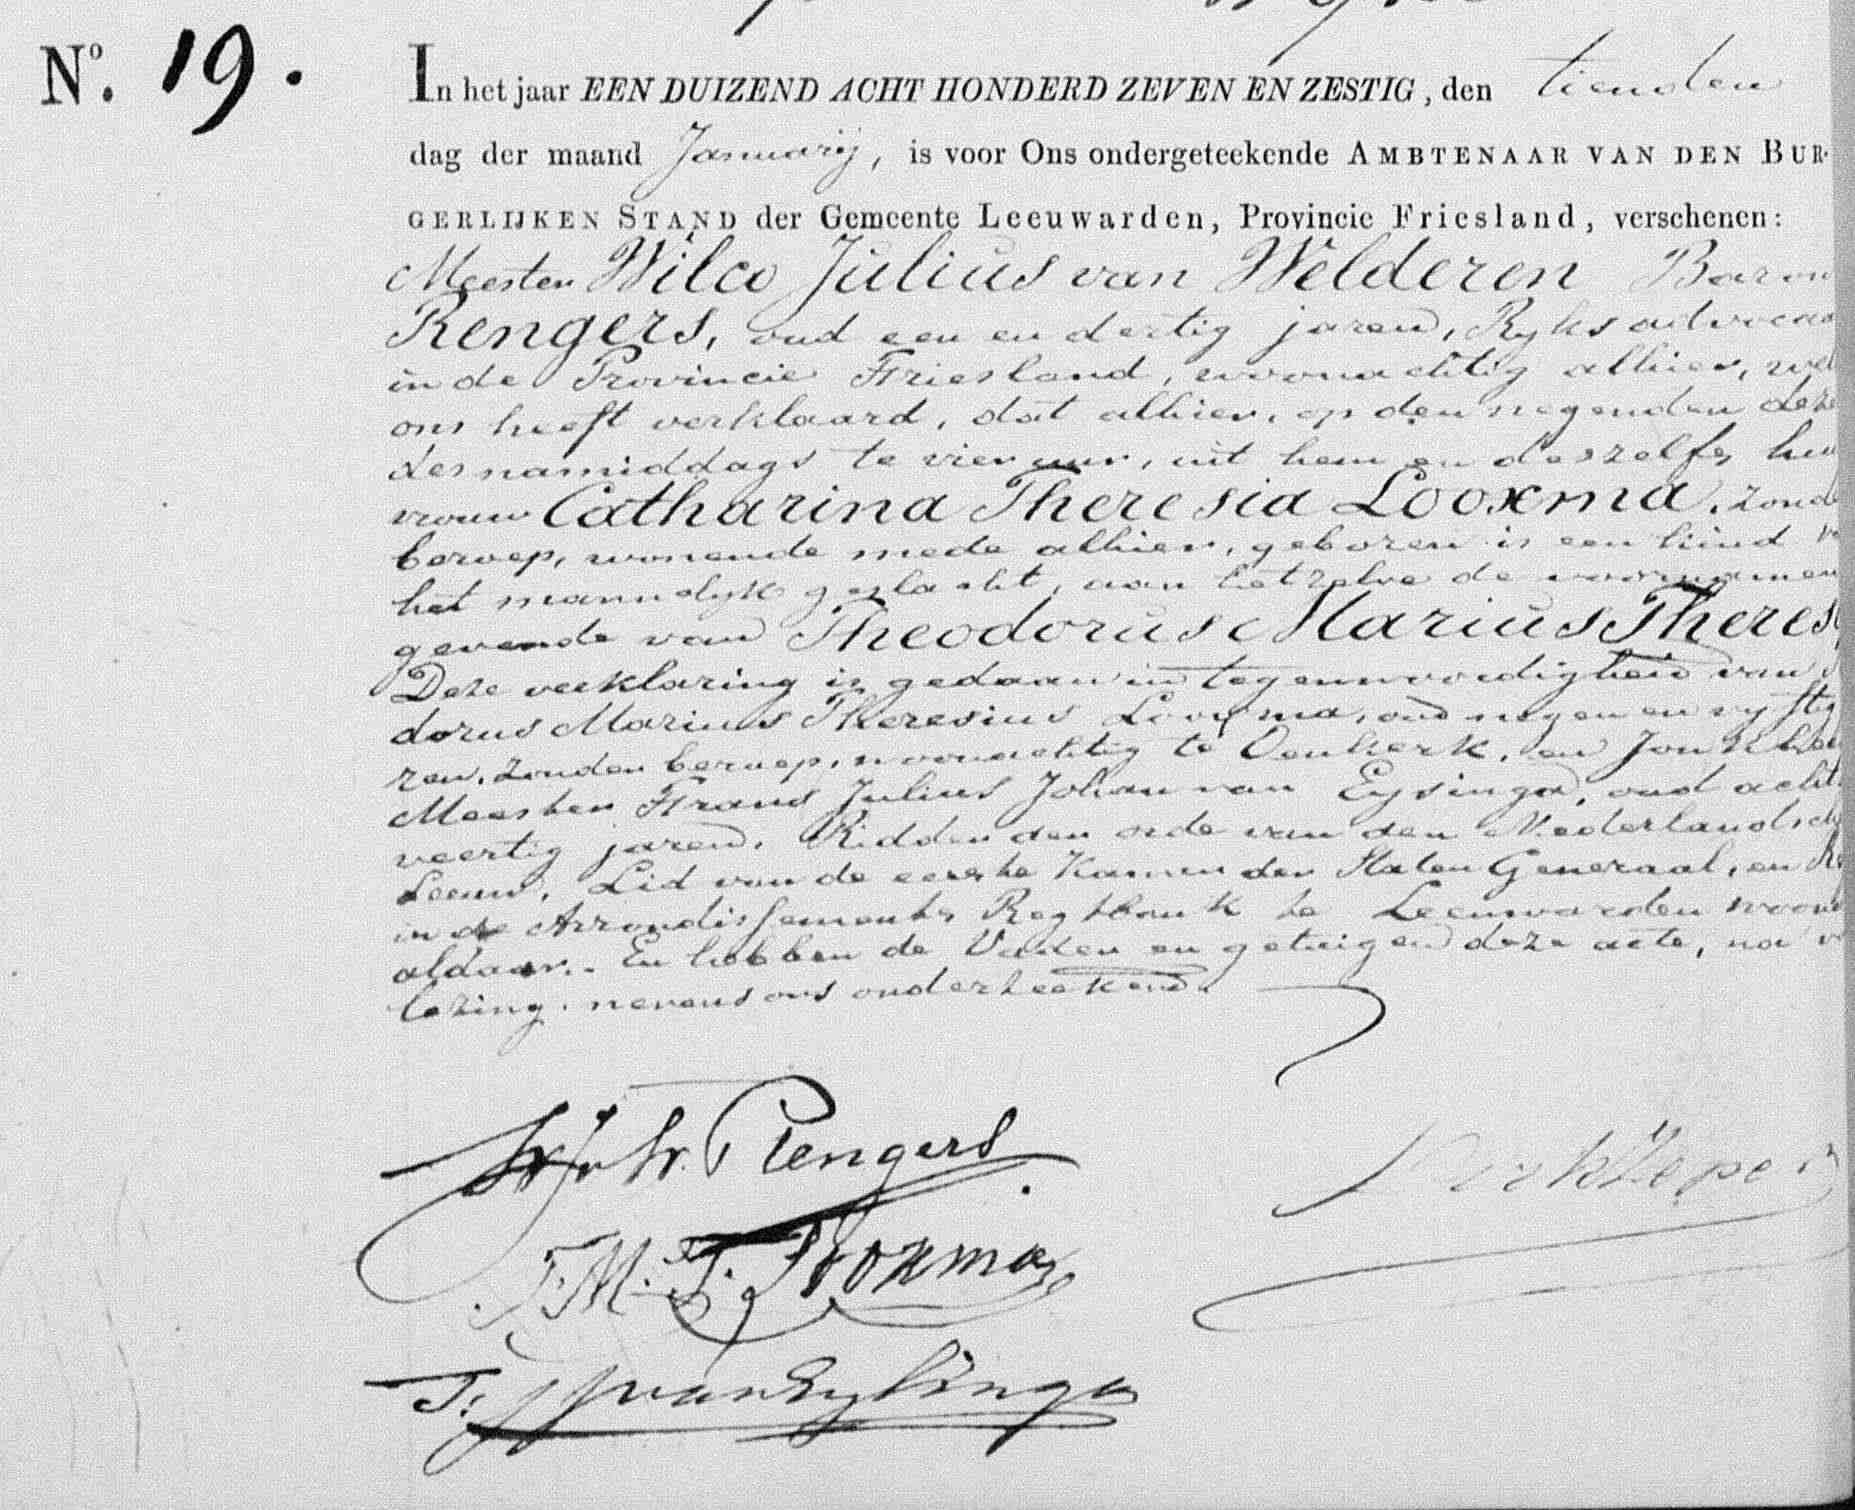 No. 19.
In het jaar EEN DUIZEND ACHT HONDERD ZEVEN EN ZESTIG, den tienden
dag der maand Januarij, is voor Ons ondergeteekende AMBTENAAR VAN DEN BUR-
GERLIJKEN STAND der Gemeente Leeuwarden, Provincie Friesland, verschenen:
Meester Wilco Julius van Welderen Baron
Rengers, oud een en dertig jaren, Ryks advocaa
in de Provincie Friesland, woonachtig alhier, wel
ons heeft verklaard, dat alhier, op den negenden deze
des namiddags te vier uur, uit hem en deszelfs hui
vrouw Catharina Theresia Looxma, zonde
beroep, wonende mede alhier, geboren is een kind v
het mannelyk geslacht, aan hetzelve de voornamen
gevende van Theodorus Marius Theres
Deze verklaring is gedaan in tegenwoordigheid van
dorus Marius Theresius Looxma, oud negen en vyftig
ren, zonder beroep, woonachtig te Oenkerk, en Jonkhee
Meester Frans Julius Johan van Eysinga, oud acht
veertig jaren, Ridder der orde van den Nederlandsch
Leeuw, Lid van de eerste Kamer der Staten Generaal, en Re
in de Arrondissements Regtbank te Leeuwarden woon
aldaar. En hebben de Vader en getuigen deze acte, na v
lezing, nevens ons onderteekend.
W. J. v. W. Rengers
T. M. T. Looxma
F. J. J. van Eysinga